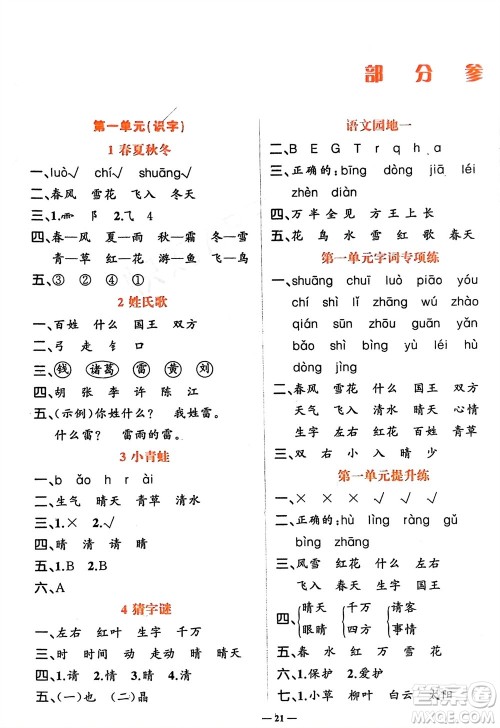 部 分 参
第一单元(识字)
1 春夏秋冬
一、luò√ chí√ shuāng√
二、春风 雪花 飞入 冬天
三、1.⻗ 阝 2.飞 4
四、春—风 夏—雨 秋—霜 冬—雪
青—草 红—花 游—鱼 飞—鸟
五、③ ② ④ ①
2 姓氏歌
一、百姓 什么 国王 双方
二、弓 走 钅 口
三、钱 诸葛 雷 黄 刘
四、胡 张 李 许 陈 江
五、(示例)你姓什么？ 我姓雷。
什么雷？ 雷雨的雷。
3 小青蛙
一、b ǎo h r ài
二、生气 晴天 青草 清水
三、1.× 2.√
四、晴 清 请 情 睛
五、1.B 2.B
六、A
4 猜字谜
一、左右 红叶 生字 时节
二、时 时间 动 走动 万 万一
三、1.请 2.情 3.清
四、√ √ ×
五、(一)也 (二)晶
语文园地一
二、B E G T r q h a
三、正确的：bīng dòng jiā léi
zhèn diàn
四、万 半 全 见 方 王 上 长
五、花 鸟 水 雪 红 歌 春天
第一单元字词专项练
一、shuāng chuī luò piāo yóu
chí shì lǐ zhāng wú zhào
qián sūn zhōu guó léi
qīng bǎo hài ràng zuǒ
dòng jìng
二、春风 雪花 什么 国王 双方
天气 飞入 青草 晴天 心情
生字 左右 红花 时间 万一
三、双 右 小 入 晴 少
第一单元提升练
一、× × × √ √ ×
二、正确的：hù lìng ràng gǔ
bīng zhèng
三、风雪 红花 什么 左右
飞入 春天 生字 时间
四、晴天 千万 请客
眼睛 四方 事情
五、春 水 红 雪 万 雪
六、1.保护 2.爱护
七、小草 柳叶 白云 太阳
21